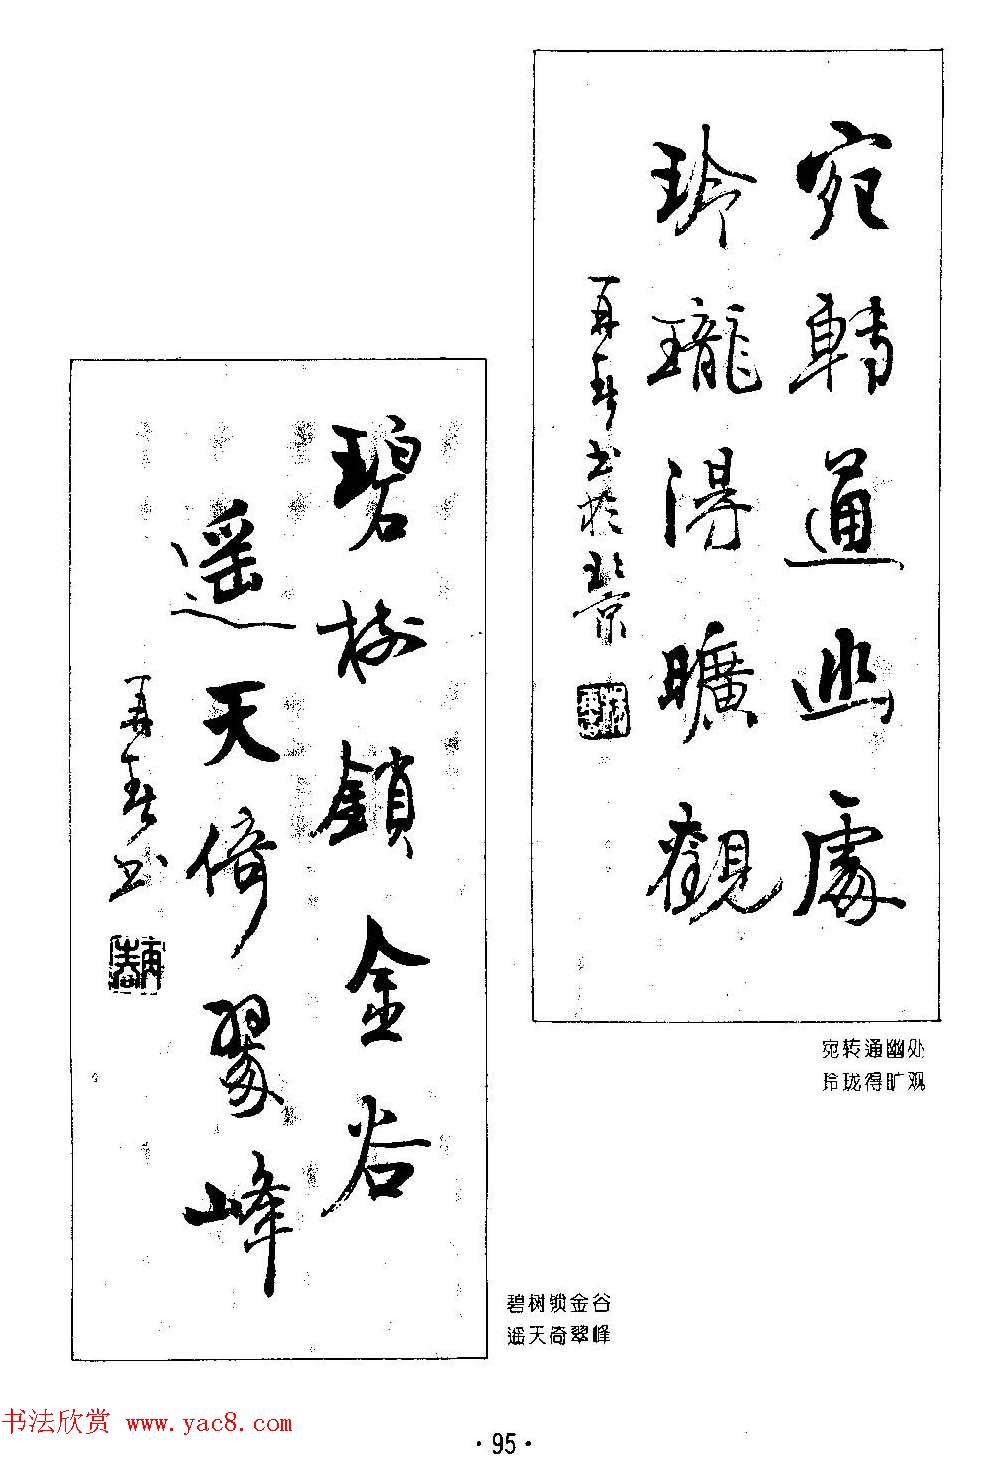 宛轉通幽處
玲瓏得曠觀
再春书於北京
宛转通幽处
玲珑得旷观
碧树鎖金谷
遥天倚翠峰
再春书
碧树锁金谷
遥天奇翠峰
书法欣赏 www.yac8.com
·95·